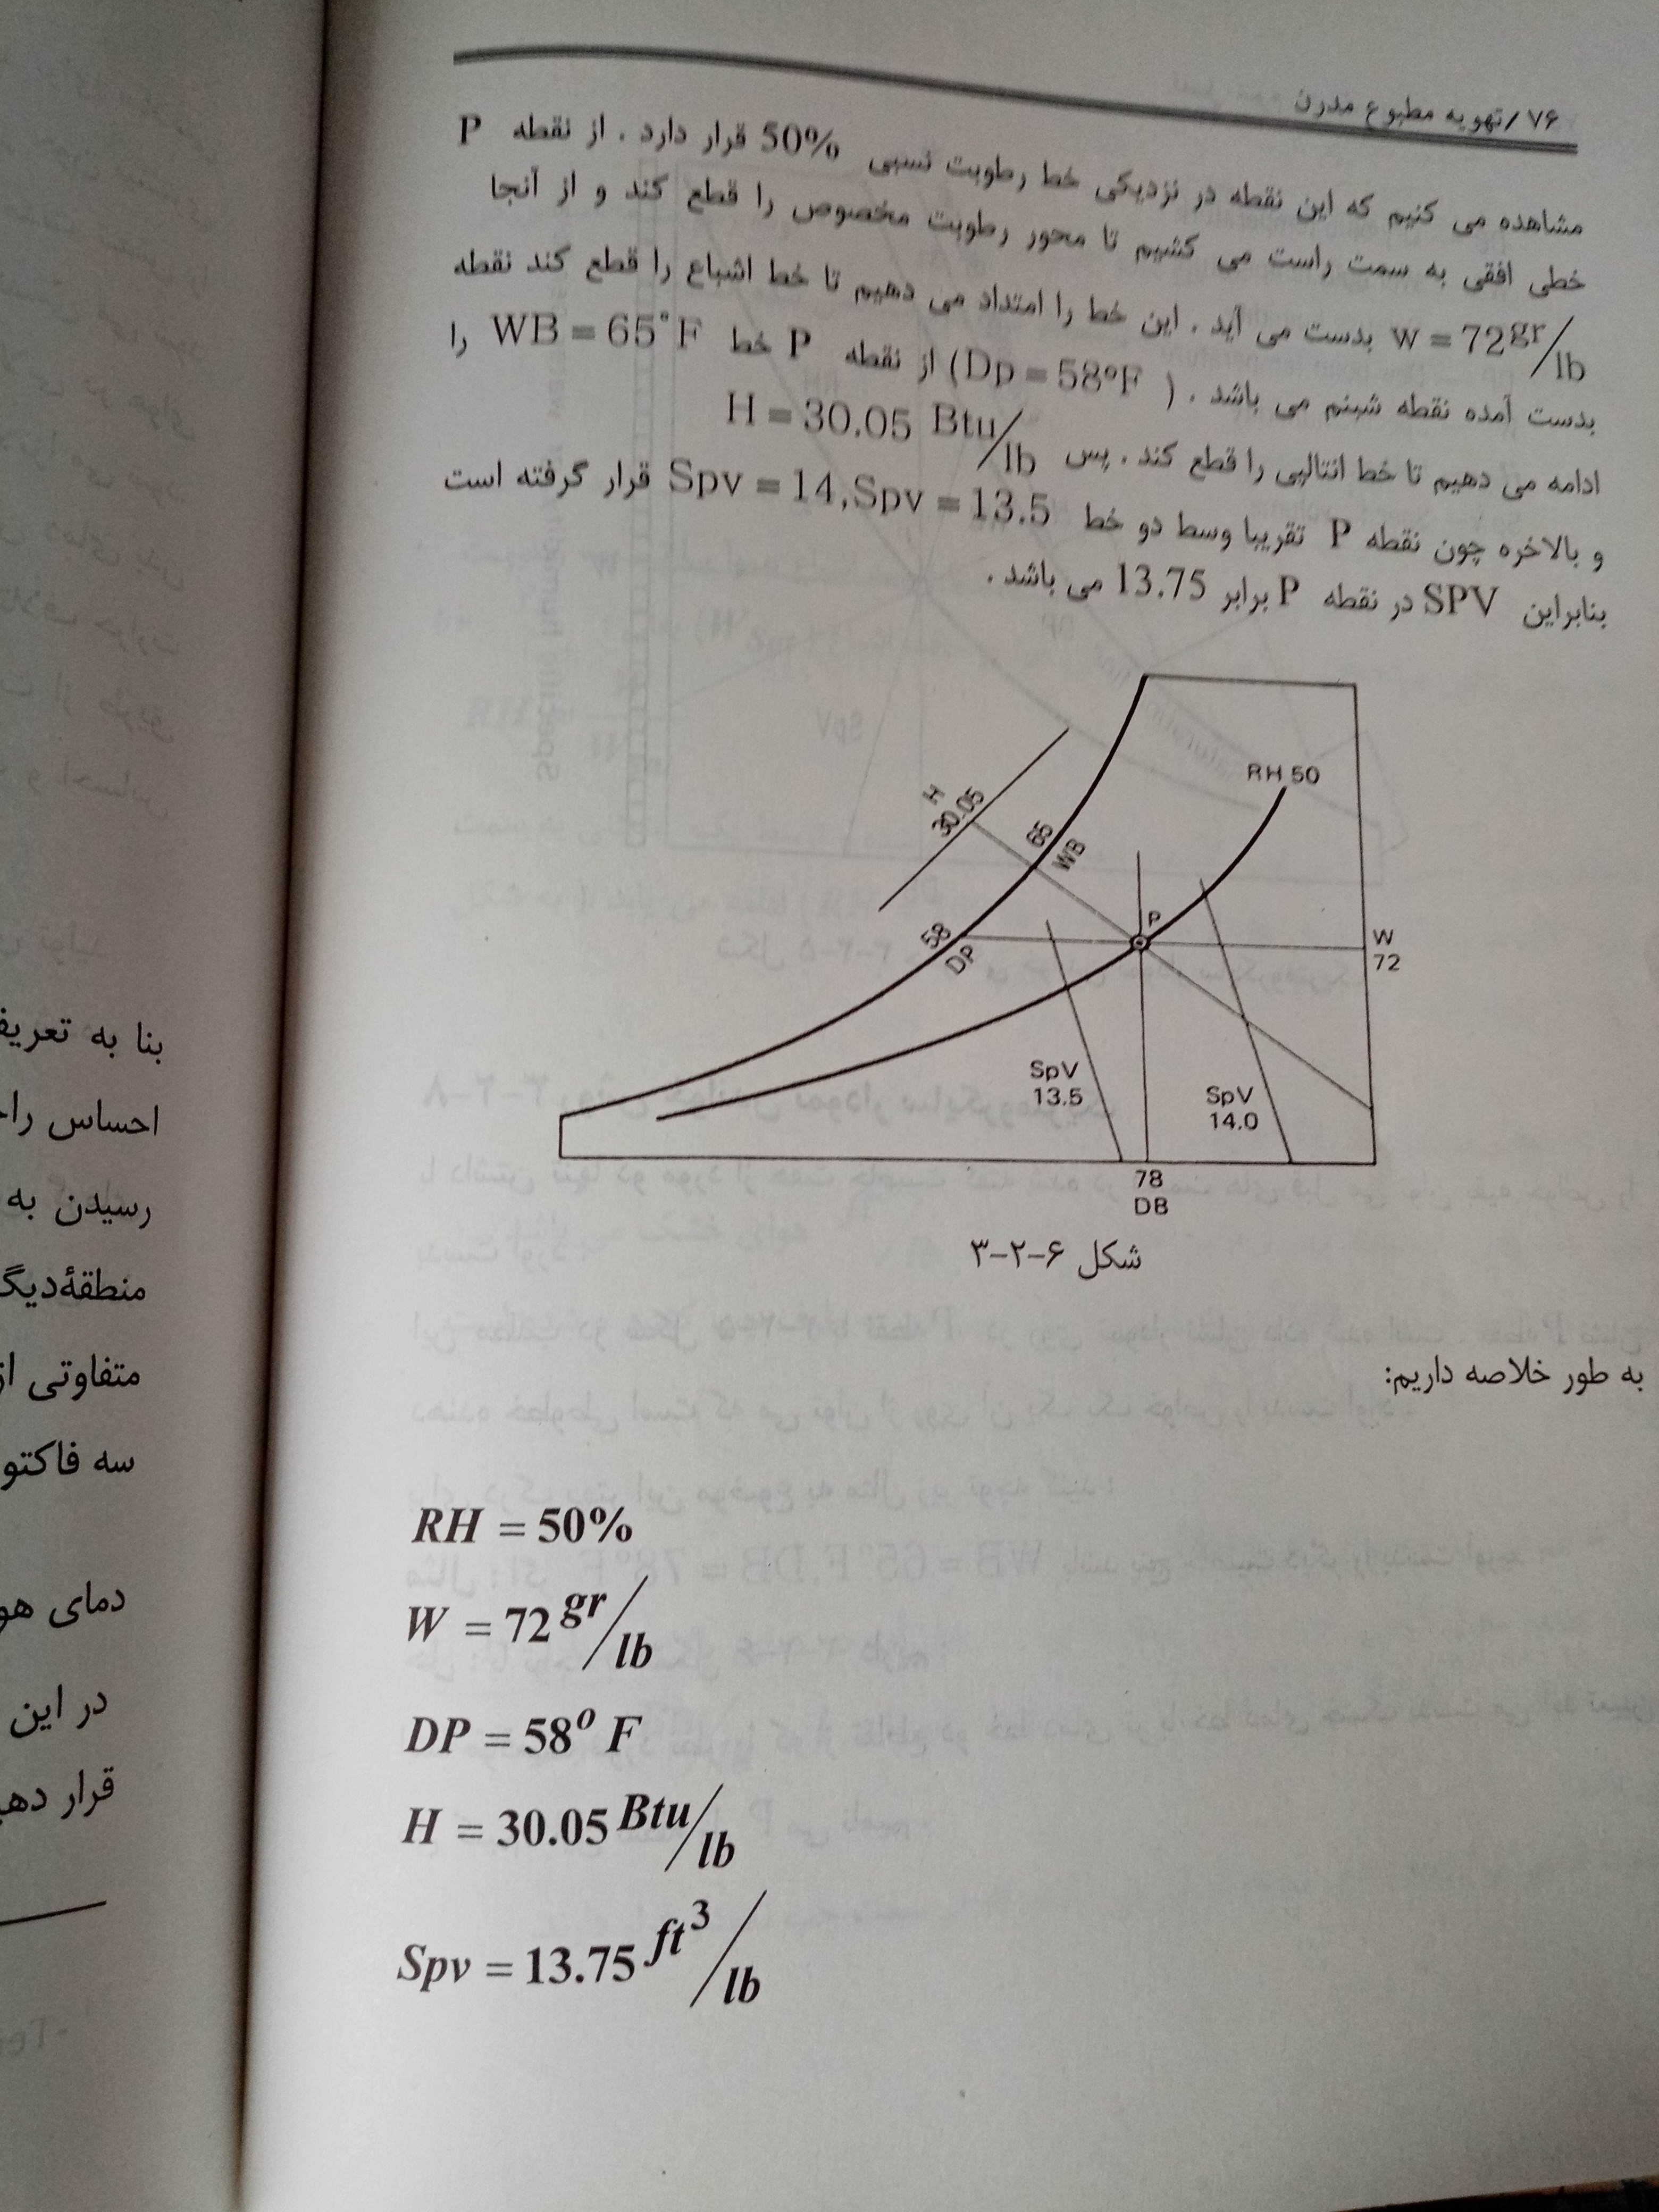 ۷۶ /تهویه مطبوع مدرن
مشاهده می کنیم که این نقطه در نزدیکی خط رطوبت نسبی 50% قرار دارد . از نقطه P
خطی افقی به سمت راست می کشیم تا محور رطوبت مخصوص را قطع کند و از آنجا
w = 72 gr/lb بدست می آید . این خط را امتداد می دهیم تا خط اشباع را قطع کند نقطه
بدست آمده نقطه شبنم می باشد . ( Dp = 58°F) از نقطه P خط WB = 65°F را
ادامه می دهیم تا خط انتالپی را قطع کند . پس H = 30.05 Btu/lb
و بالاخره چون نقطه P تقریبا وسط دو خط Spv = 14,Spv = 13.5 قرار گرفته است
بنابراین SPV در نقطه P برابر 13.75 می باشد .
RH 50
H
30.05
65
WB
58
DP
P
W
72
SpV
13.5
SpV
14.0
78
DB
شکل ۶-۲-۳
به طور خلاصه داریم:
RH = 50%
W = 72 gr/lb
DP = 58° F
H = 30.05 Btu/lb
Spv = 13.75 ft³/lb
بنا به تعریف
احساس
رسیدن به
متفاوتی
سه
دمای
در این
قرار